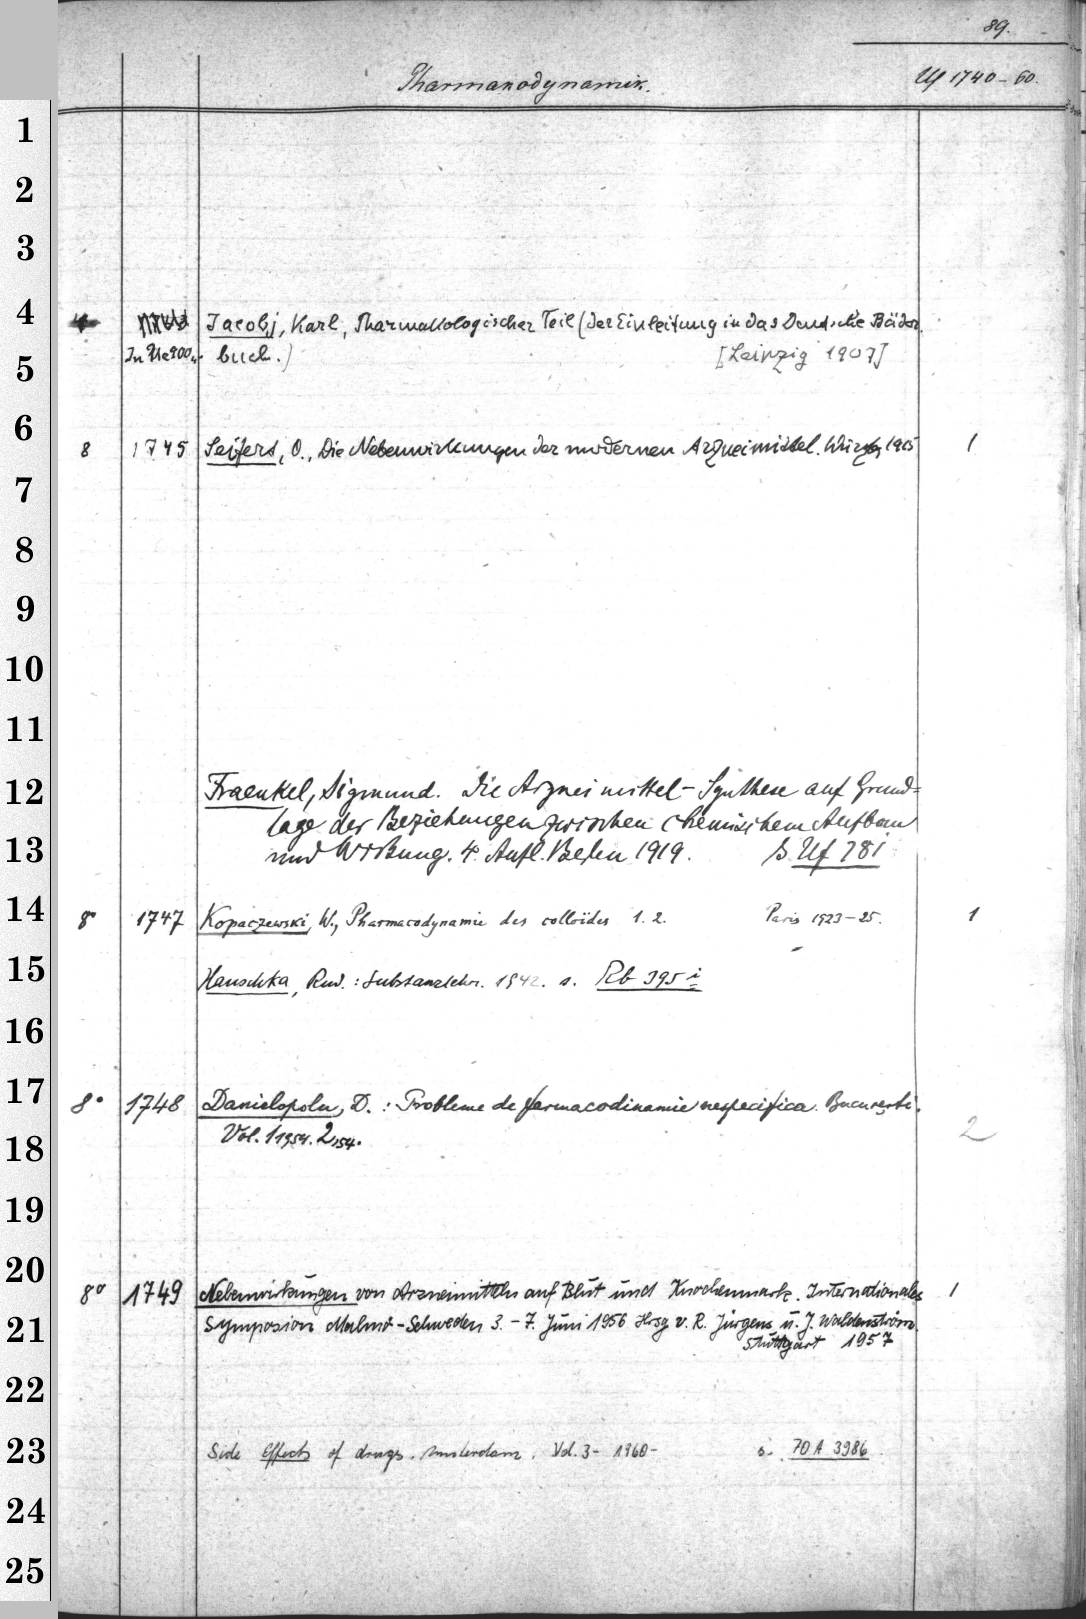 89.
Pharmakodynamik. Uf 1740-60.
1
2
3
4 Jacobj, Karl, Pharmakologischer Teil (der Einleitung in das Deutsche Bäder
5 buch.) [Leipzig 1907]
6 8 1745 Seifert, O., Die Nebenwirkungen der modernen Arzneimittel. Würzbg 1915 1
7
8
9
10
11
12 Fraenkel, Sigmund. Die Arzneimittel-Synthese auf Grund=
lage der Beziehungen zwischen chemischem Aufbau
13 und Wirkung. 4. Aufl. Berlin 1919. s. Uf 781
14 8° 1747 Kopaczewski, W., Pharmacodynamie des colloïdes 1. 2. Paris 1923-25. 1
15 Hauschka, Rud.: Substanzlehre. 1942. s. Rb 395 i
16
17 8° 1748 Danielopolu, D.: Probleme de farmacodinamie nespecifica. Bucureşti.
18 Vol. 1 1954. 2 154. 2
19
20 8° 1749 Nebenwirkungen von Arzneimitteln auf Blut und Knochenmark. Internationales 1
21 Symposion Malmö-Schweden 3.-7. Juni 1956 Hrsg v. R. Jürgens u. J. Waldenström.
Stuttgart 1957
22
23 Side Effects of drugs. Amsterdam. Vol. 3- 1960- s. 70 A 3986
24
25